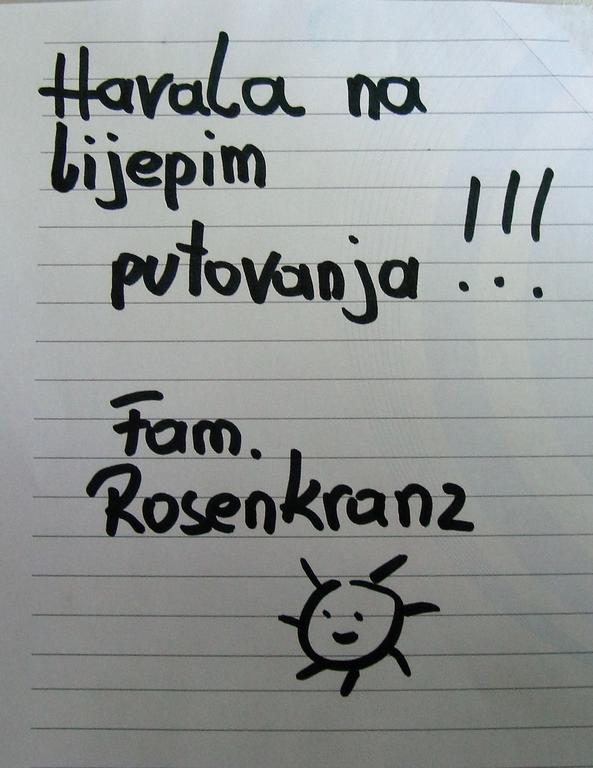 Havala na
lijepim
putovanja !!!
Fam.
Rosenkranz